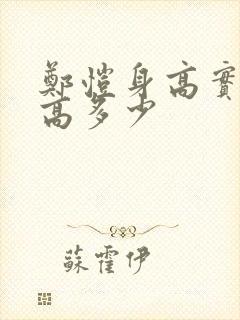 鄭愷身高實
高多少
蘇霍伊